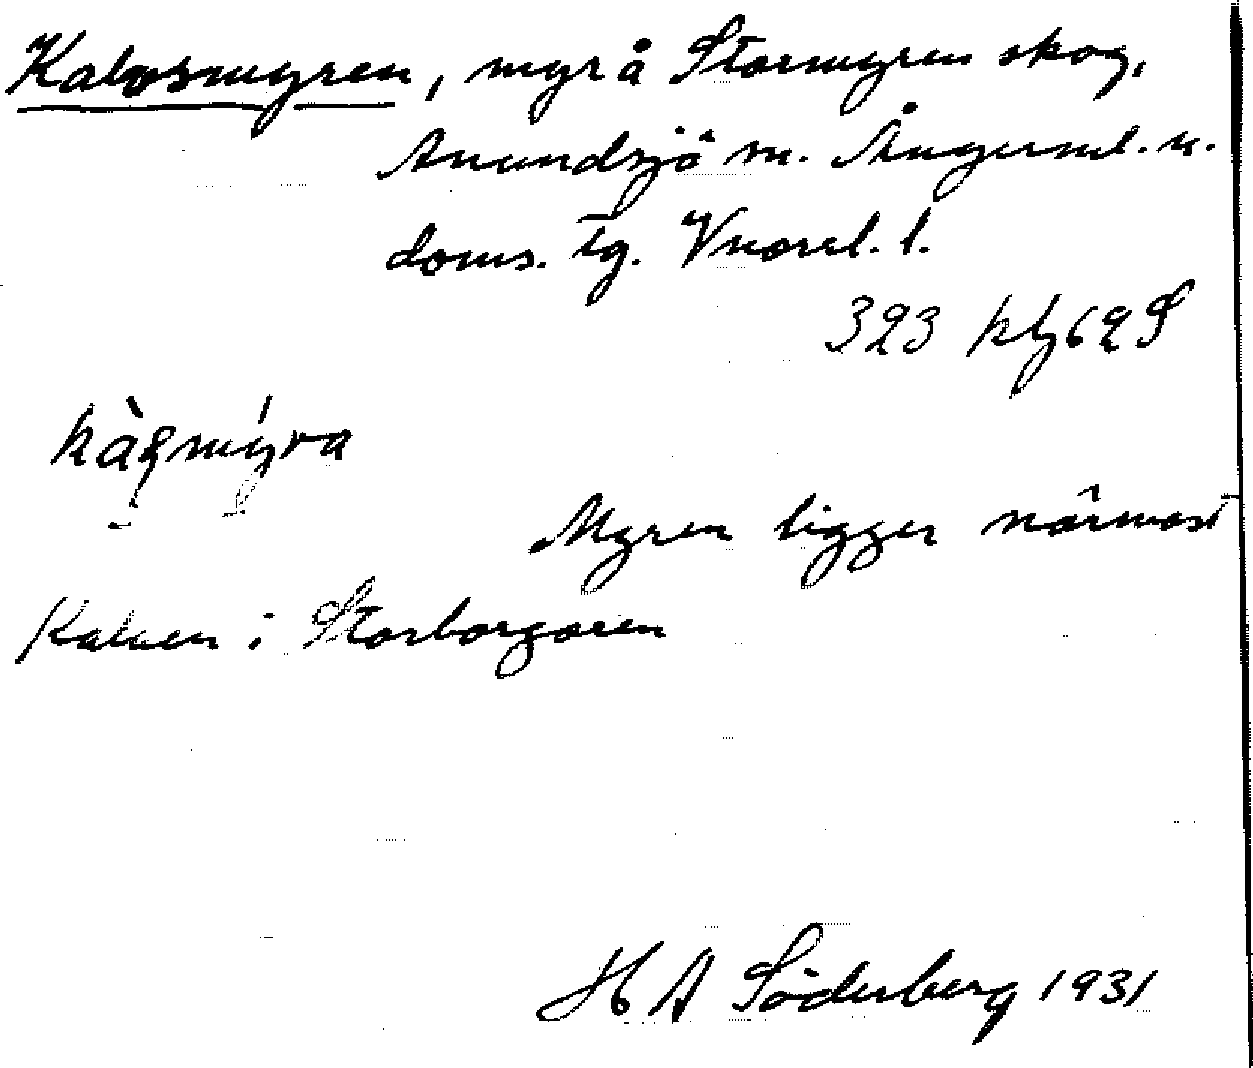 Kalvsmyren, myr å Stormyren skog,
Anundsjö sn. Ångerml. n.
doms. tg. Vnorrl. l.
323
Myren ligger närmast
Kalven i Storborgaren
H A Söderberg 1931